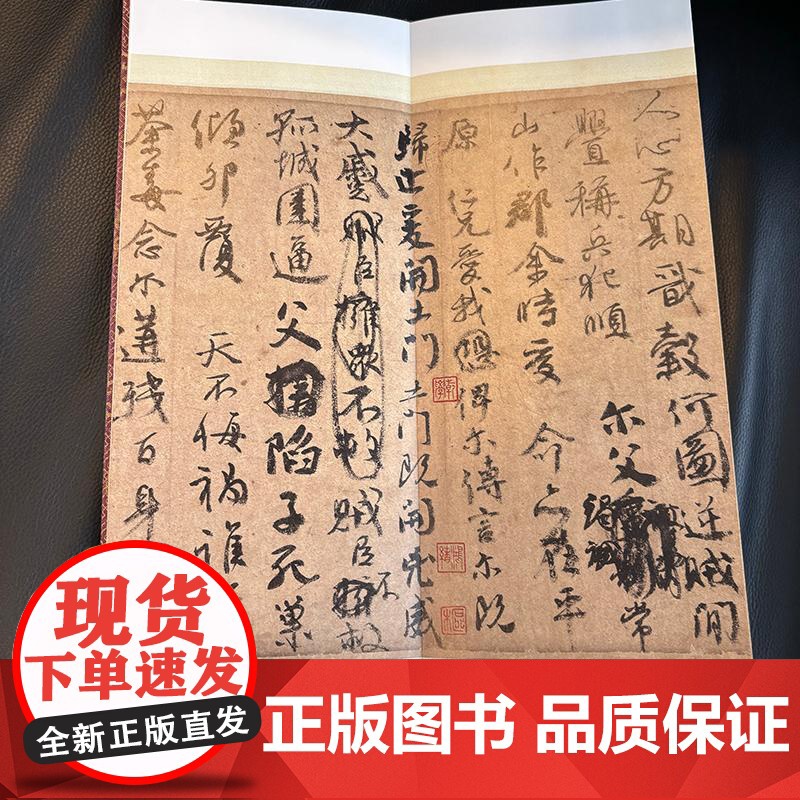 人心方期戩穀何圖逆賊間
釁稱兵犯順 尔父常
山作郡余時受 命亦在平
原 仁兄愛我俾尔傳言尔既
歸止爰開土門土門既開兇威
大蹙賊臣擁衆不救賊臣不救
孤城圍逼父陷子死巢
傾卵覆 天不悔禍誰
荼毒念尔遘殘百身
现货
下单速发
全新正版直发
正版图书 品质保证